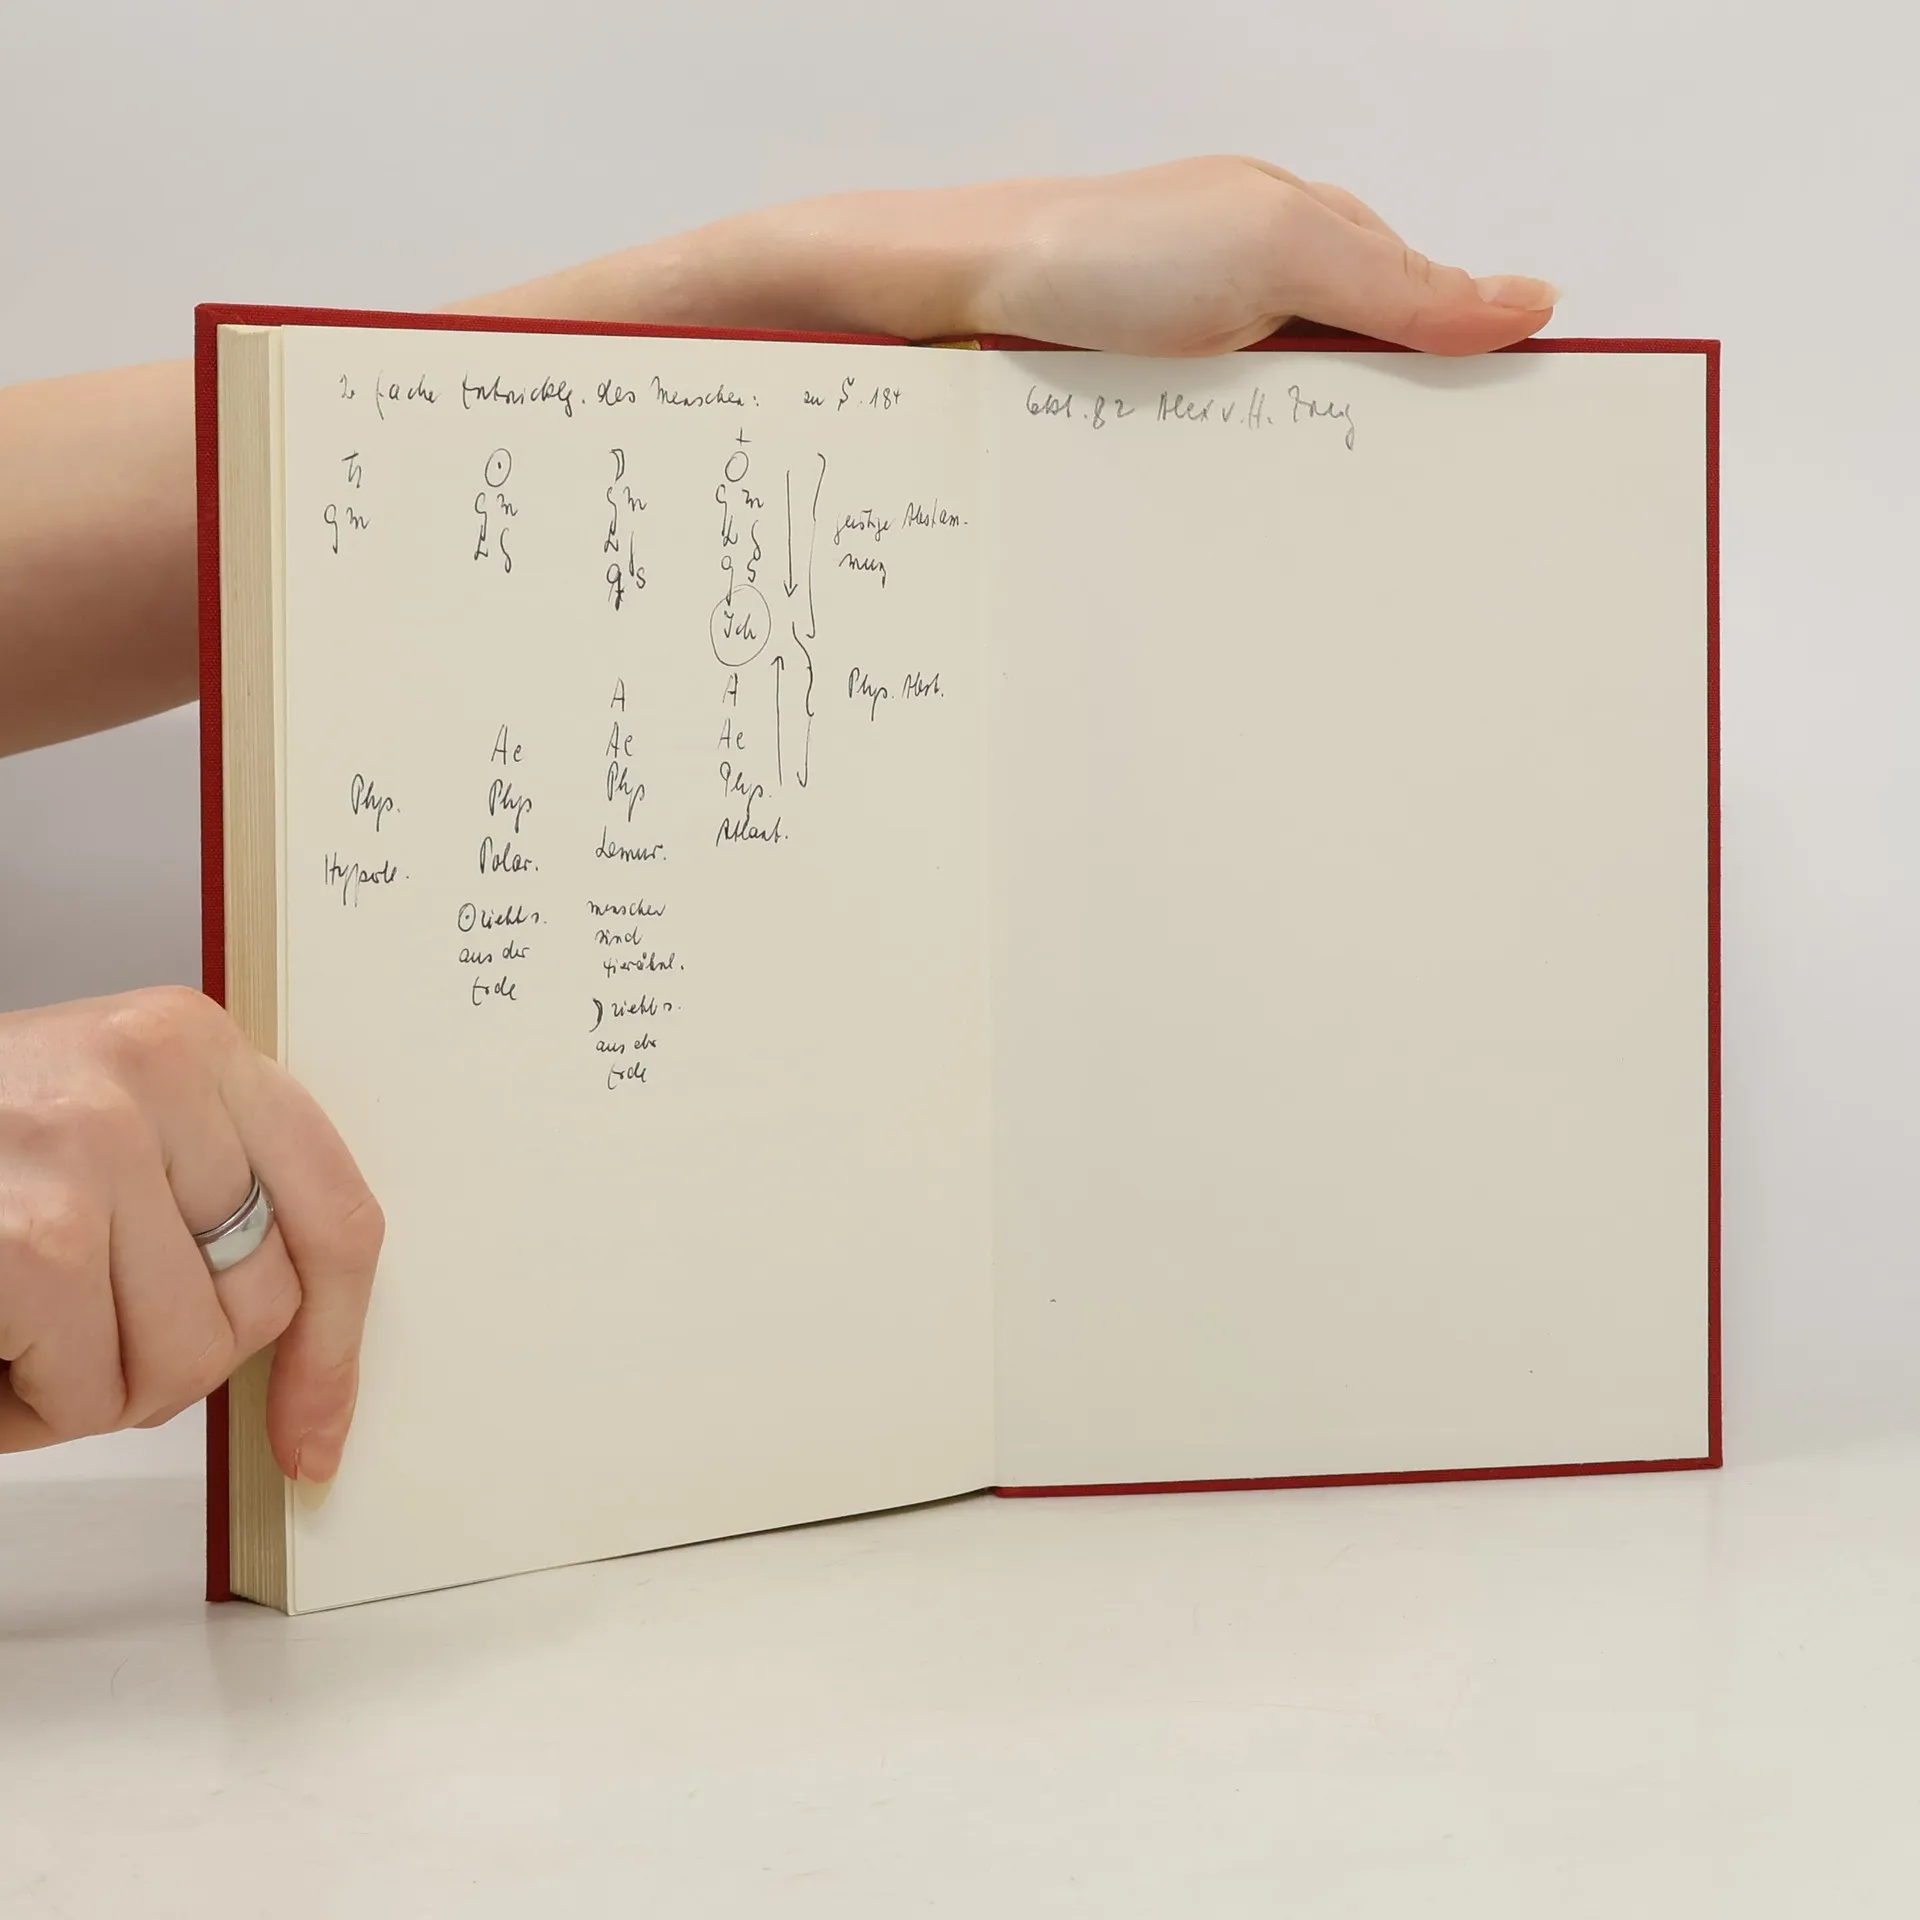 2 fache Entwicklg. des Menschen: zu S. 184
♄ ☉ ☽ ♁
G M G M G M G M
L f L f L f
g s g s
geistige Abstam-
mung
Ich
A A
Phys. Abst.
Ae Ae Ae
Phys. Phys Phys Phys.
Hyperb. Polar. Lemur. Atlant.
☉ zieht s.
aus der
Erde
Menschen
sind
tierähnl.
☽ zieht s.
aus der
Erde
82 Alex v. H.